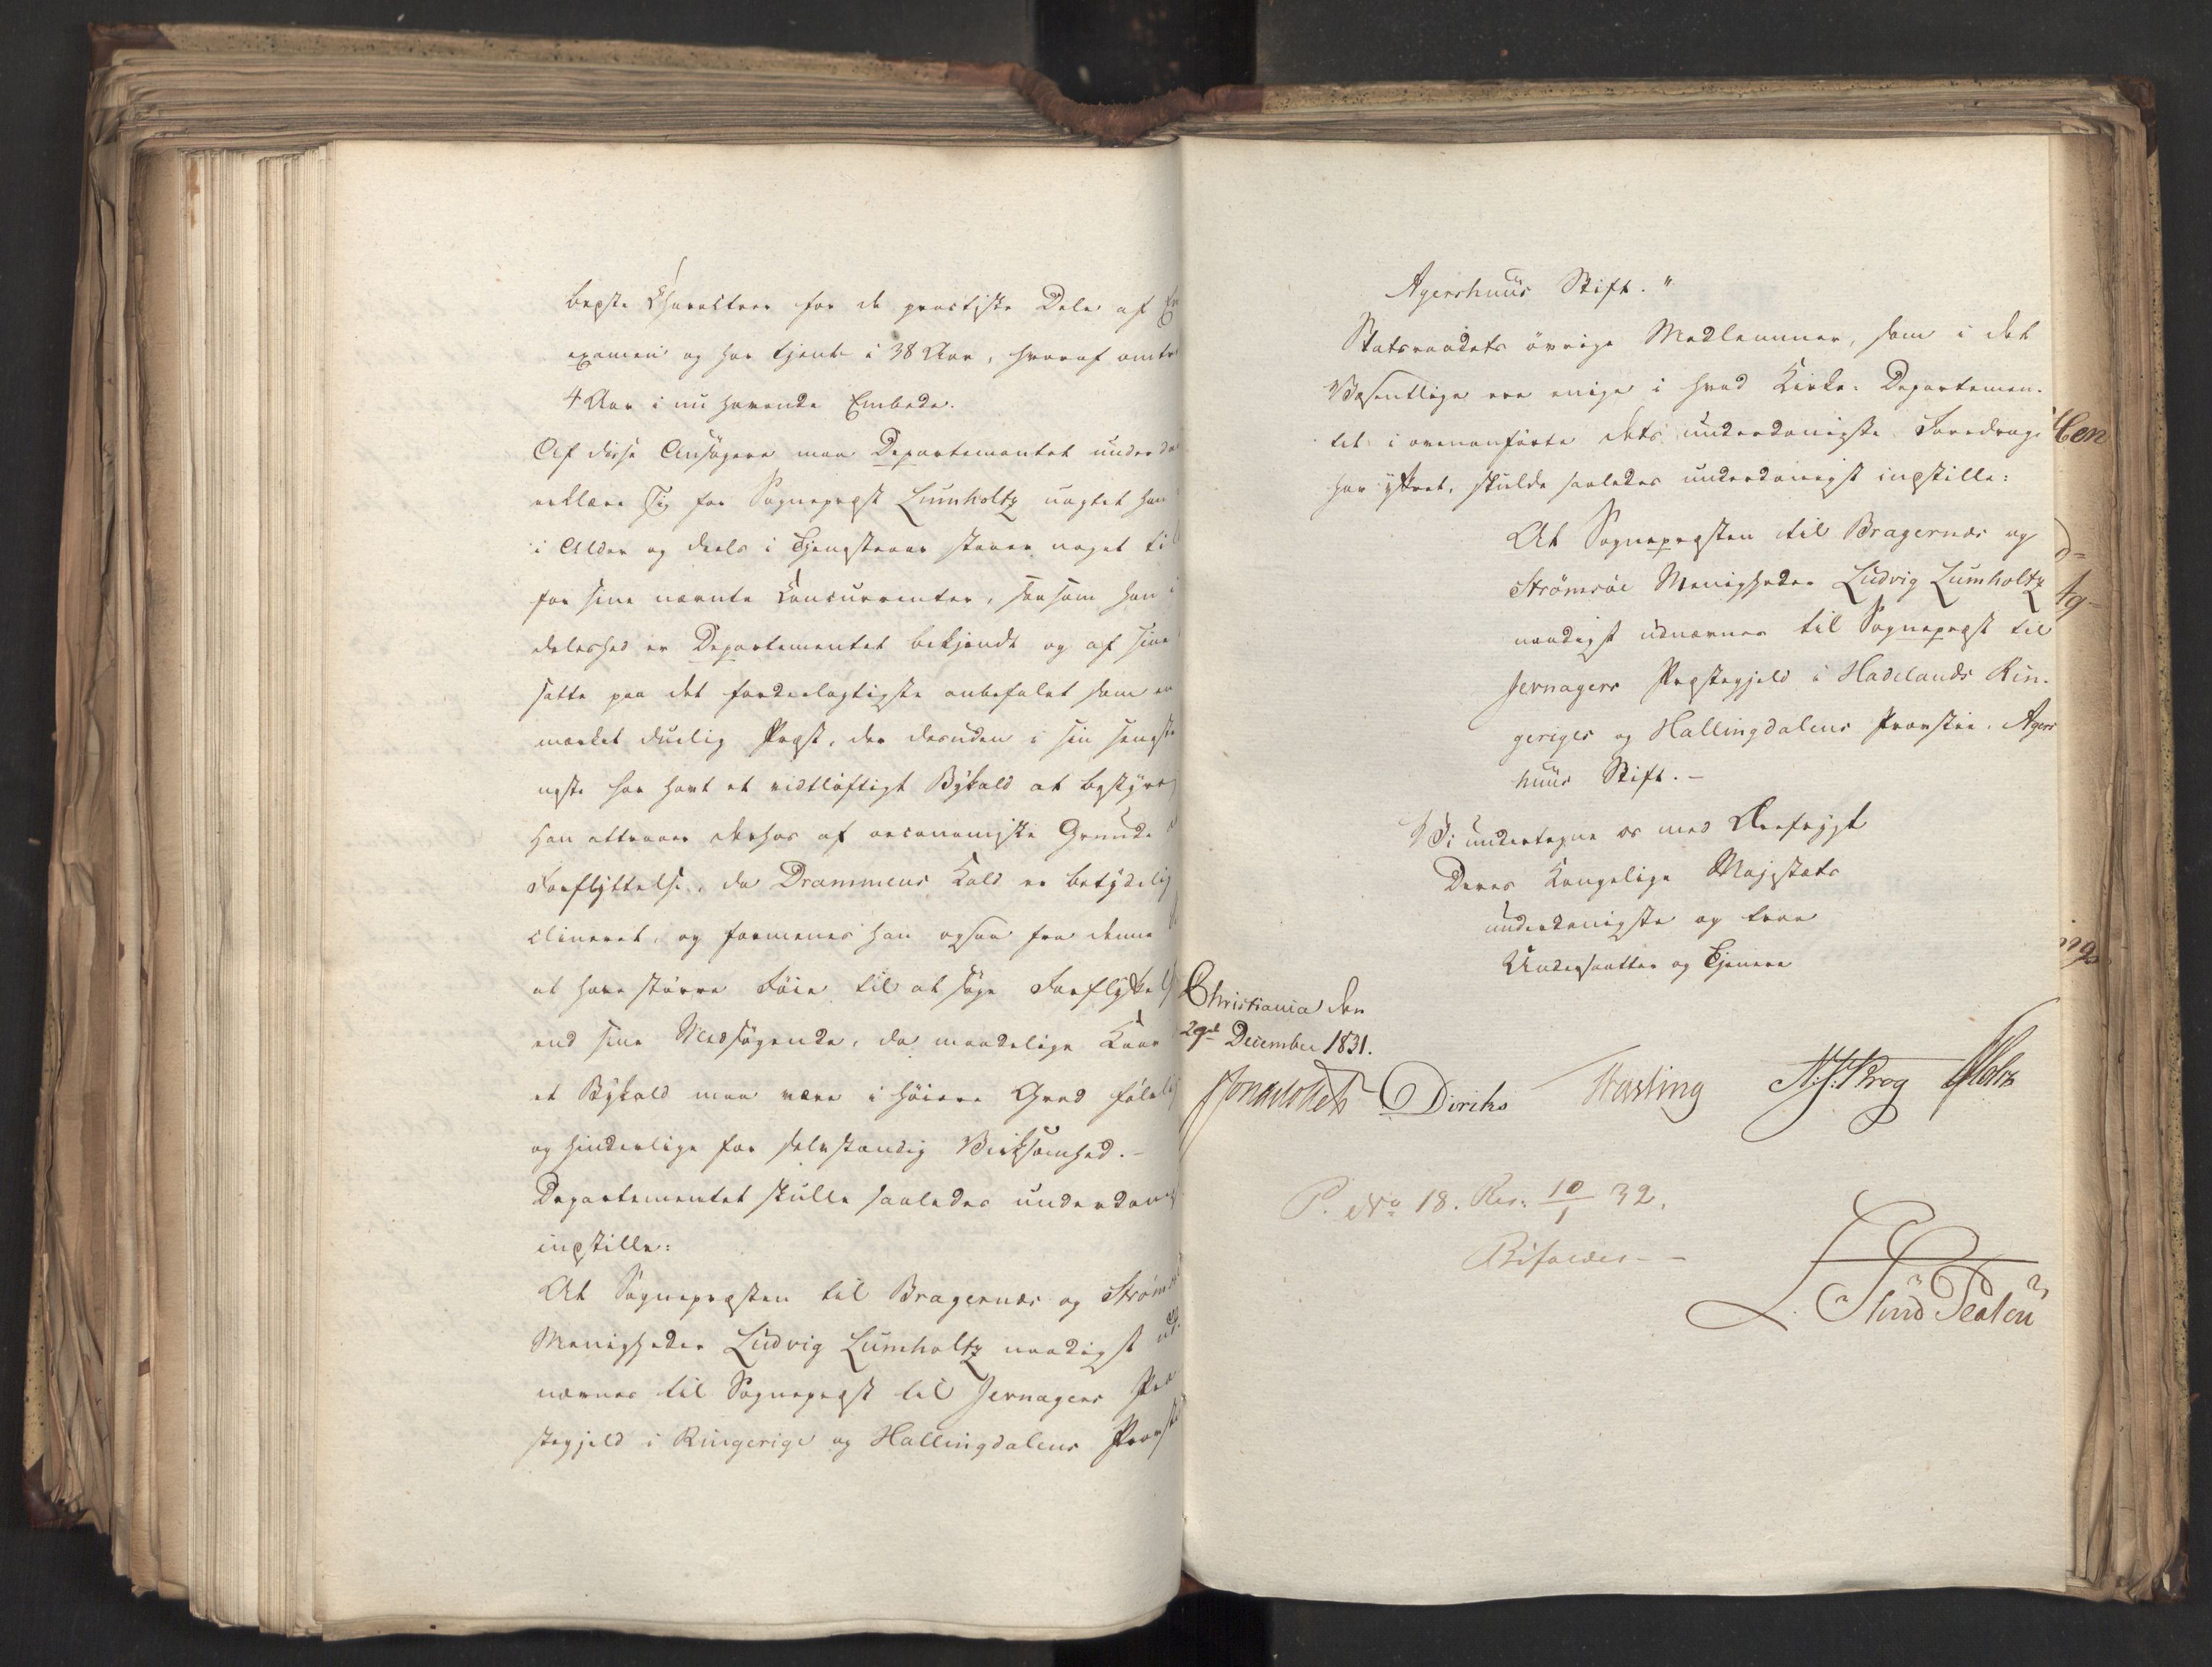 bepste Charakteer for de practiske Dele af
examen og har tjent i 38 Aar, hvoraf omtr
4 Aar i nu havende Embede.
Af disse Ansøgere maa Departementet underda
erklære sig for Sognepræst Lumholtz uagtet han
i Alder og deels i Tjenesteaar staaer noget ti
for sine nævnte Concurrenter, saasom han i
deleshed er Departementet bekjendt og af sine
satte paa det fordeelagtigste anbefalet som en
mærket duelig Præst, der desuden i sin seneste
neste har havt et vidtløftigt Bykald at bestyre
Han attraaer derhos af oeconomiske Grunde
Forflyttelse, da Drammens Kald er betydelig
clineret, og formenes han ogsaa fra denne
at have større Føie til at søge Forflyttels
end sine Medsøgende, da maadelige Kaar
et Bykald maa være i høiere Grad følelig
og hinderlige for selvstændig Virksomhed.-
Departementet skulle saaledes underdanig
inpstille:
At Sognepræsten til Bragernæs og Strøms
Menigheder Ludvig Lumholtz naadigst ud
nævnes til Sognepræst til Jevnagers Præ
stegjeld i Ringerige og Hallingdalens Provstie
Agershuus Stift."
Statsraadets øvrige Medlemmer, som i det
Væsentlige ere enige i hvad Kirke-Departemen-
tet i ovenanførte dets underdanigste Foredrag
har yttret, skulde saaledes underdanigst inpstille:
At Sognepræsten til Bragernæs og
Strømsøe Menigheder Ludvig Lumholtz
naadigst udnævnes til Sognepræst til
Jevnagers Præstegjeld i Hadelands Rin-
geriges og Hallingdalens Provstie. Agers
huus Stift.-
Vi undertegne os med Ærefrygt
Deres Kongelige Majestæts
underdanigste og troe
Undersaatter og Tjenere
Christiania den
29de December 1831.
Jonas Collett Diriks Fasting Krog Holst
P. No 18. Res. 10/1 32.
Bifaldes -